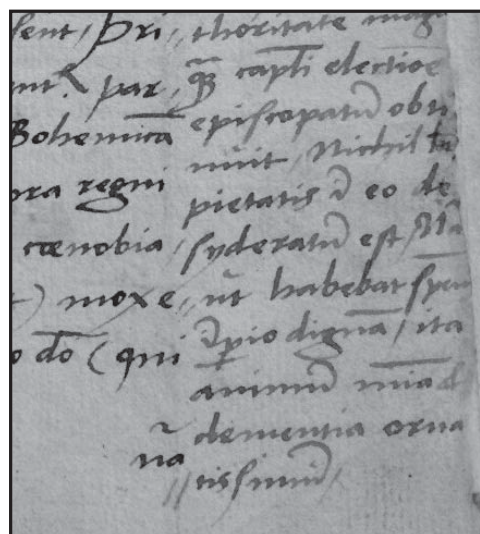 sent, pri,,
nt. par,
Bohemicā
ora regni
cœnobia,
) moxe,,
o dō (qui
nā
thoritate mag
capl̄i electiōe
episcopatū obti
nuit, Nichil tn̄
pietatis ī eo de
syderatū est, Nā
ut habebat spēm
īpio dignā, ita
animū mīa &
clementia orna
//tissimū,